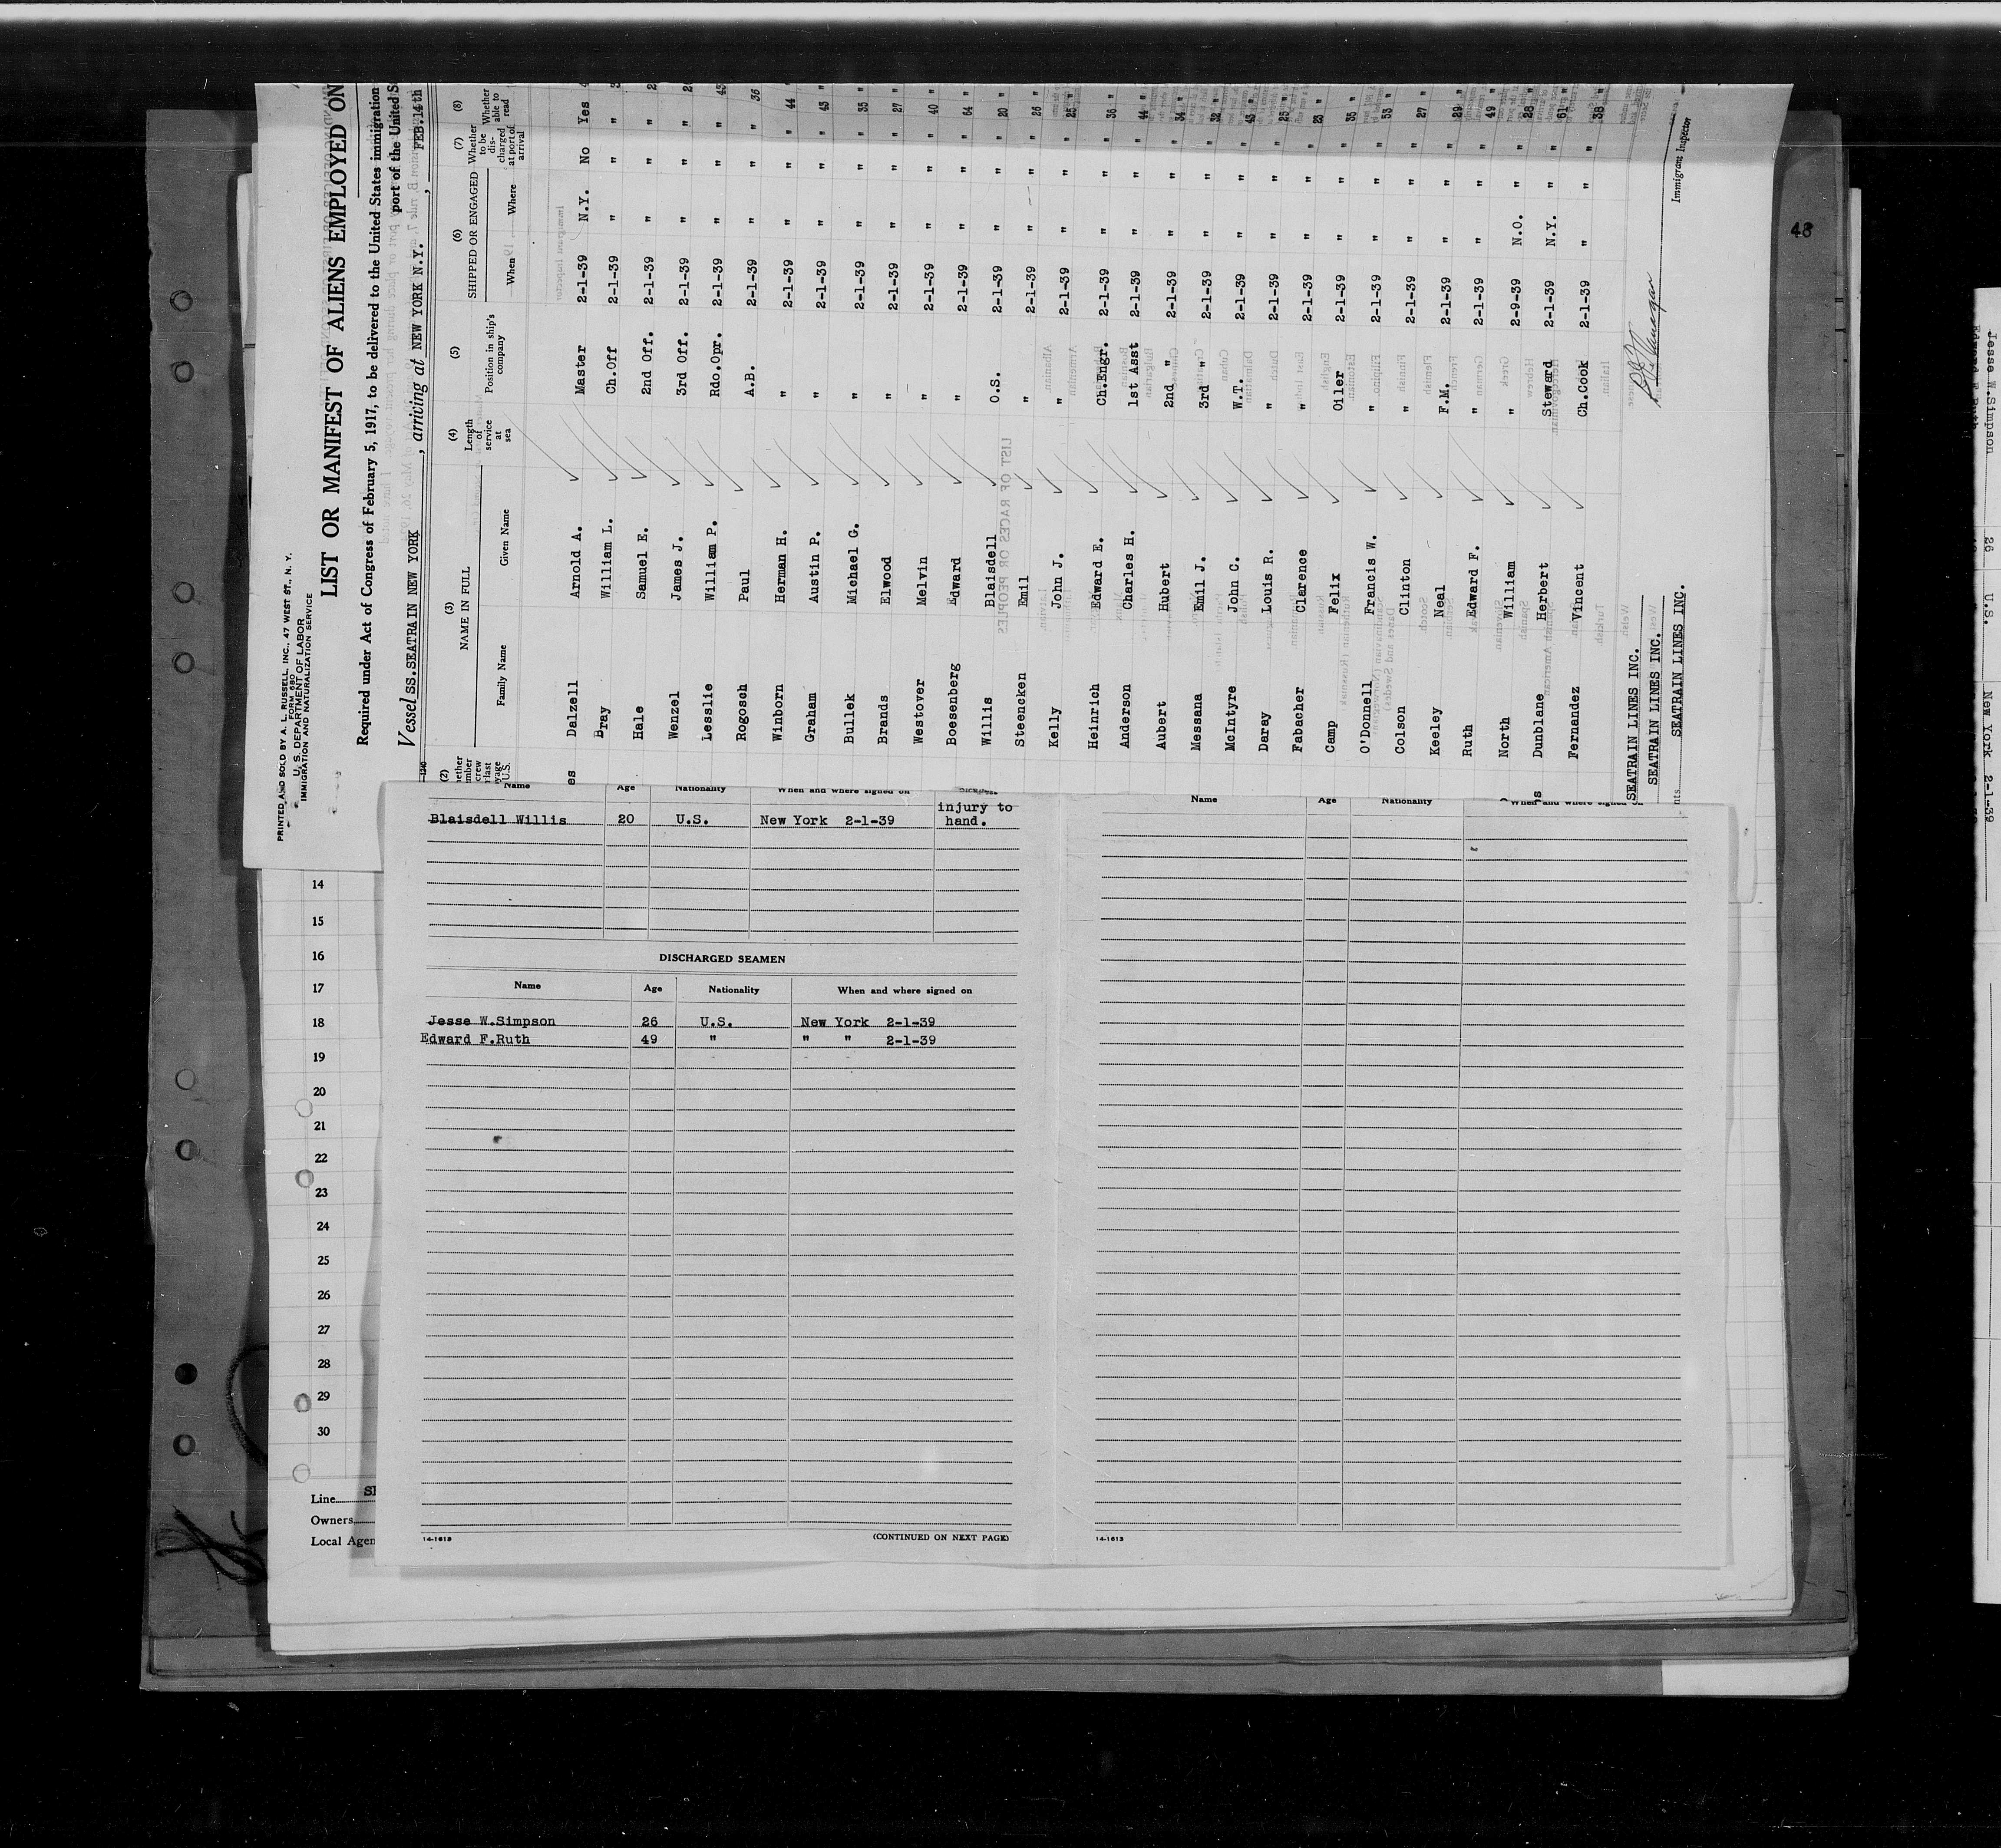 PRINTED AND SOLD BY A. L. RUSSELL, INC., 47 WEST ST., N. Y.
FORM 680
U. S. DEPARTMENT OF LABOR
IMMIGRATION AND NATURALIZATION SERVICE
LIST OR MANIFEST OF ALIENS EMPLOYED ON
Required under Act of Congress of February 5, 1917, to be delivered to the United States immigration
port of the United S
Vessel SS.SEATRAIN NEW YORK, arriving at NEW YORK N.Y., FEB.14th
(2) (3) (4) (5) (6) (7) (8)
NAME IN FULL
Family Name Given Name
Length of service at sea
Position in ship's company
SHIPPED OR ENGAGED
When Where
Whether to be discharged at port of arrival
Whether able to read
es Dalzell Arnold A. Master 2-1-39 N.Y. No Yes
Bray William L. Ch.Off 2-1-39 " " "
Hale Samuel E. 2nd Off. 2-1-39 " " "
Wenzel James J. 3rd Off. 2-1-39 " " "
Lesslie William P. Rdo.Opr. 2-1-39 " " "
Rogosch Paul A.B. 2-1-39 " " " 36
Winborn Herman H. " 2-1-39 " " " 44 "
Graham Austin P. " 2-1-39 " " " 43 "
Bullek Michael G. " 2-1-39 " " " 35 "
Brands Elwood " 2-1-39 " " " 27 "
Westover Melvin " 2-1-39 " " " 40 "
Boesenberg Edward " 2-1-39 " " " 64 "
Willis Blaisdell O.S. 2-1-39 " " " 20 "
Steencken Emil " 2-1-39 " " " 26 "
Kelly John J. " 2-1-39 " " " 25 "
Heinrich Edward E. Ch.Engr. 2-1-39 " " " 36 "
Anderson Charles H. 1st Asst 2-1-39 " " " 44 "
Aubert Hubert 2nd " 2-1-39 " " " 34 "
Messana Emil J. 3rd " 2-1-39 " " " 32 "
McIntyre John C. W.T. 2-1-39 " " " 43 "
Daray Louis R. " 2-1-39 " " " 25 "
Fabacher Clarence " 2-1-39 " " " 23 "
Camp Felix Oiler 2-1-39 " " " 35 "
O'Donnell Francis W. " 2-1-39 " " " 53 "
Colson Clinton " 2-1-39 " " " 27 "
Keeley Neal F.M. 2-1-39 " " " 29 "
Ruth Edward F. " 2-1-39 " " " 49 "
North William " 2-9-39 N.O. " " 28 "
Dunblane Herbert Steward 2-1-39 N.Y. " " 61 "
Fernandez Vincent Ch.Cook 2-1-39 " " " 38 "
SEATRAIN LINES INC.
SEATRAIN LINES INC.
SEATRAIN LINES INC.
Immigrant Inspector
48
Name Age Nationality When and where signed on
injury to
Blaisdell Willis 20 U.S. New York 2-1-39 hand.
DISCHARGED SEAMEN
Name Age Nationality When and where signed on
Jesse W.Simpson 26 U.S. New York 2-1-39
Edward F.Ruth 49 " " " 2-1-39
14-1613
(CONTINUED ON NEXT PAGE)
Name Age Nationality When and where signed on
14-1613
14
15
16
17
18
19
20
21
22
23
24
25
26
27
28
29
30
Line
Owners
Local Agen
Jesse W.Simpson 26 U.S. New York 2-1-39
Edward F.Ruth